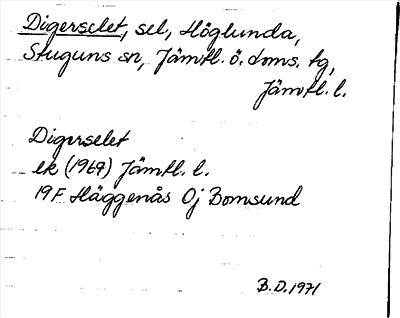 Digerselet, sel, Höglunda,
Stuguns sn, Jämtl. ö. doms. tg,
Jämtl. l.
Digerselet
ek (1969) Jämtl. l.
19F Häggenås Oj Bomsund
B.D. 1971